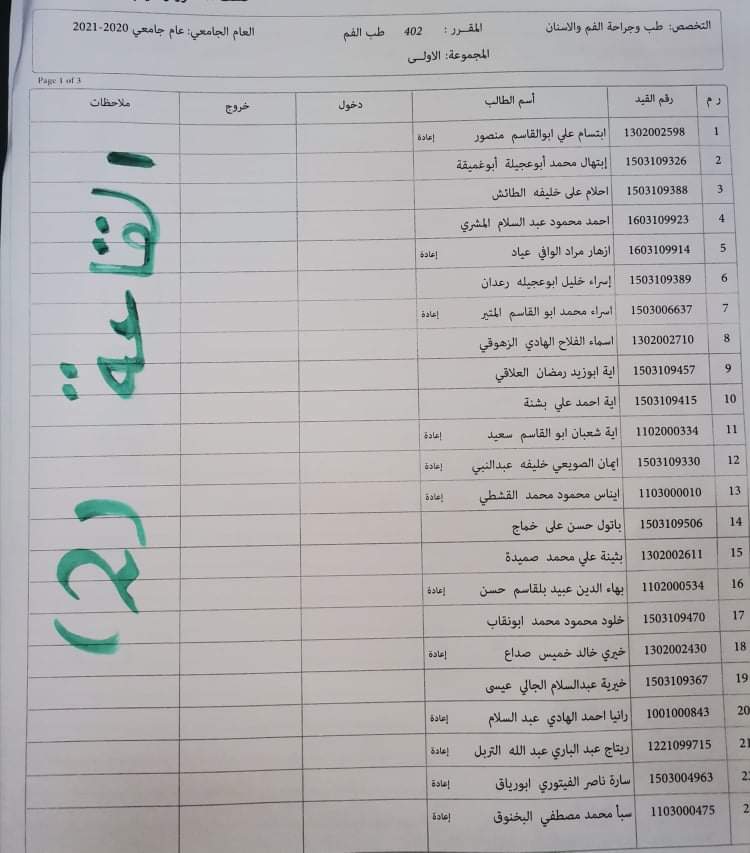 التخصص: طب وجراحة الفم والاسنان المقـرر : 402 طب الفم العام الجامعي: عام جامعي 2020-2021
المجموعة: الاولى
Page 1 of 3
ر م رقم القيد أسم الطالب دخول خروج ملاحظات
1 1302002598 ابتسام علي ابوالقاسم منصور إعادة
2 1503109326 إبتهال محمد أبوعجيلة أبوغميقة
3 1503109388 احلام على خليفه الطائش
4 1603109923 احمد محمود عبد السلام المشري
5 1603109914 ازهار مراد الوافي عياد إعادة
6 1503109389 إسراء خليل ابوعجيله رعدان
7 1503006637 اسراء محمد ابو القاسم المتير إعادة
8 1302002710 اسماء الفلاح الهادي الزهوقي
9 1503109457 اية ابوزيد رمضان العلاقي
10 1503109415 اية احمد علي بشنة
11 1102000334 اية شعبان ابو القاسم سعيد إعادة
12 1503109330 ايمان الصويعي خليفه عبدالنبي إعادة
13 1103000010 ايناس محمود محمد القشطي إعادة
14 1503109506 باتول حسن على خماج
15 1302002611 بثينة علي محمد صميدة
16 1102000534 بهاء الدين عبيد بلقاسم حسن إعادة
17 1503109470 خلود محمود محمد ابونقاب
18 1302002430 خيري خالد خميس صداع إعادة
19 1503109367 خيرية عبدالسلام الجالي عيسى
20 1001000843 رانيا احمد الهادي عبد السلام إعادة
21 1221099715 ريتاج عبد الباري عبد الله التربل إعادة
2 1503004963 سارة ناصر الفيتوري ابورياق إعادة
2 1103000475 سبأ محمد مصطفي البخنوق إعادة
القاعة (2)